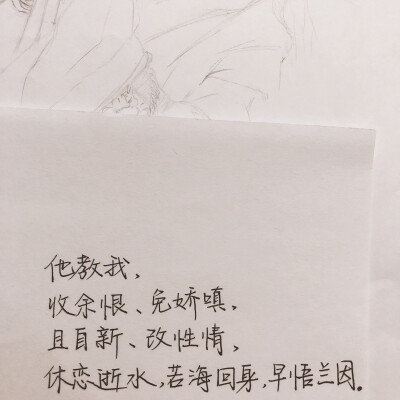 他教我，
收余恨、免娇嗔，
且自新、改性情，
休恋逝水，苦海回身，早悟兰因。